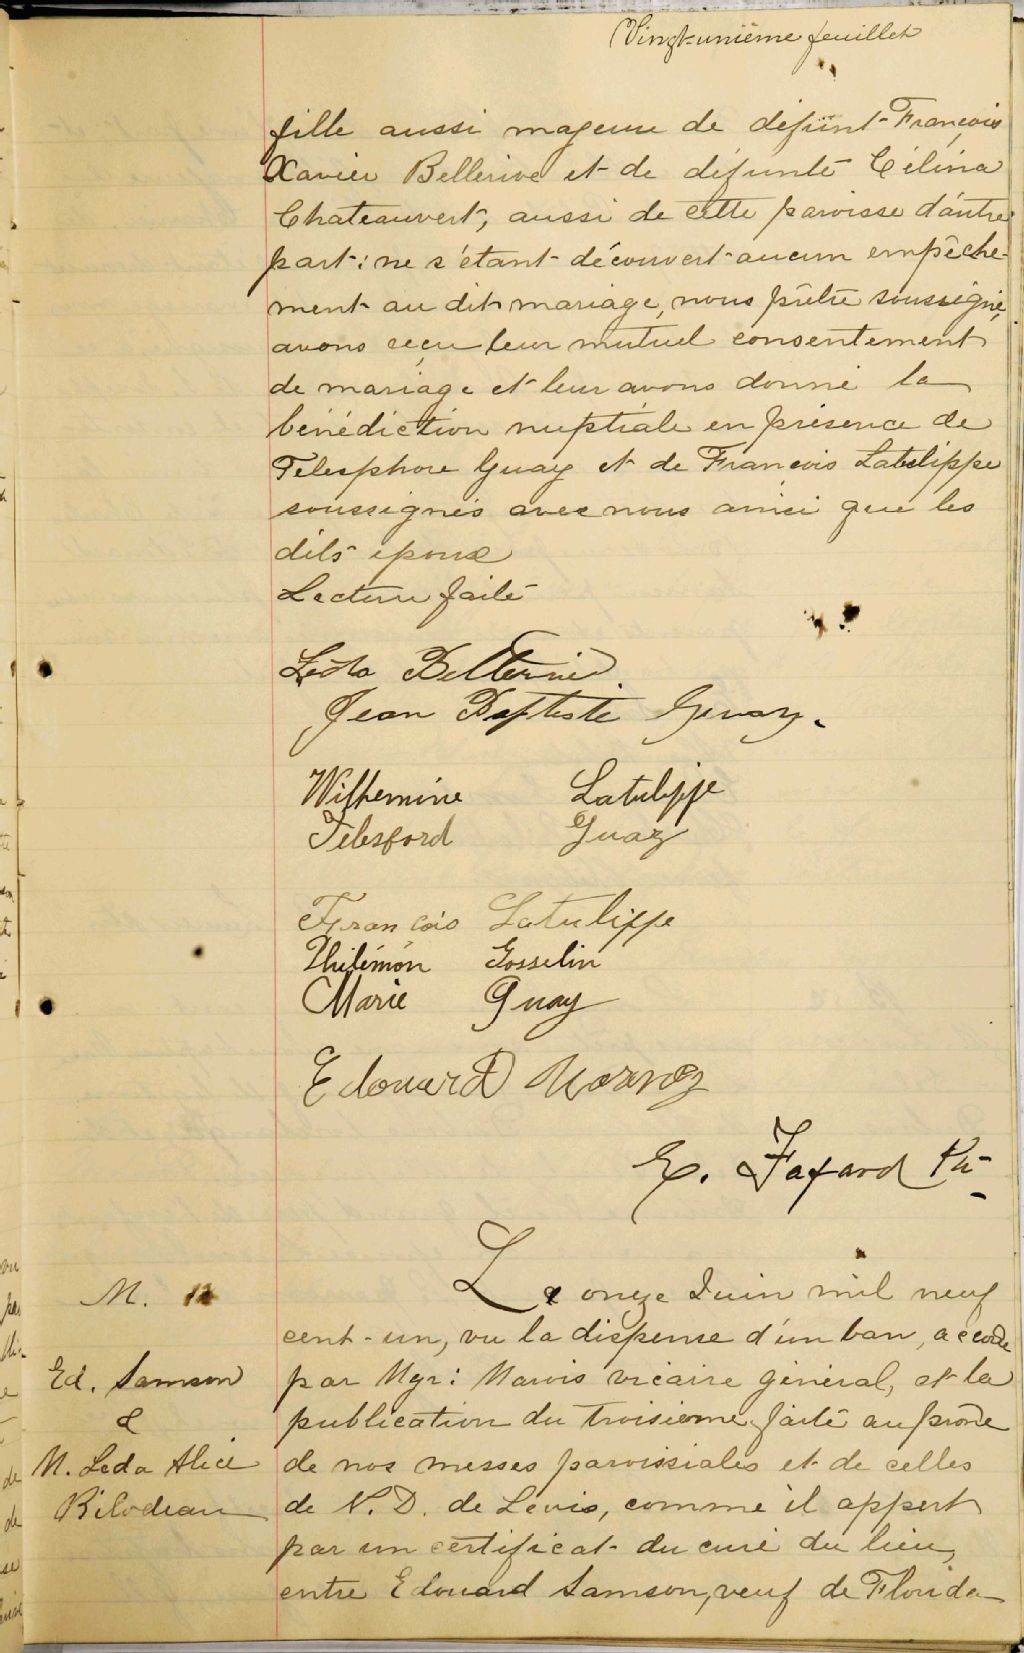 Vingt-unième feuillet
fille aussi mageure de défunt François
Xavier Bellerive et de défunte Célina
Chateauvert, aussi de cette paroisse d'autre
part: ne s'étant découvert aucun empêche-
ment au dit mariage, nous prêtre soussigné,
avons reçu leur mutuel consentement
de mariage et leur avons donné la
bénédiction nuptiale en présence de
Telesphore Guay et de François Latulippe
soussignés avec nous ainsi que les
dits époux
Lecture faite
Léda Bellerive
Jean Baptiste Guay.
Wilhemine Latulippe
Telesford Guay
François Latulippe
Philémon Gosselin
Marie Guay
Edouard
E. Fafard Ptr
M. 12
Ed. Samson
&
M. Leda Alice
Bilodeau
Le onze Juin mil neuf
cent-un, vu la dispense d'un ban, accordé
par Mgr: Marois vicaire général, et la
publication du troisième faite au prône
de nos messes paroissiales et de celles
de N. D. de Levis, comme il appert
par un certificat du curé du lieu,
entre Edouard Samson, veuf de Florida